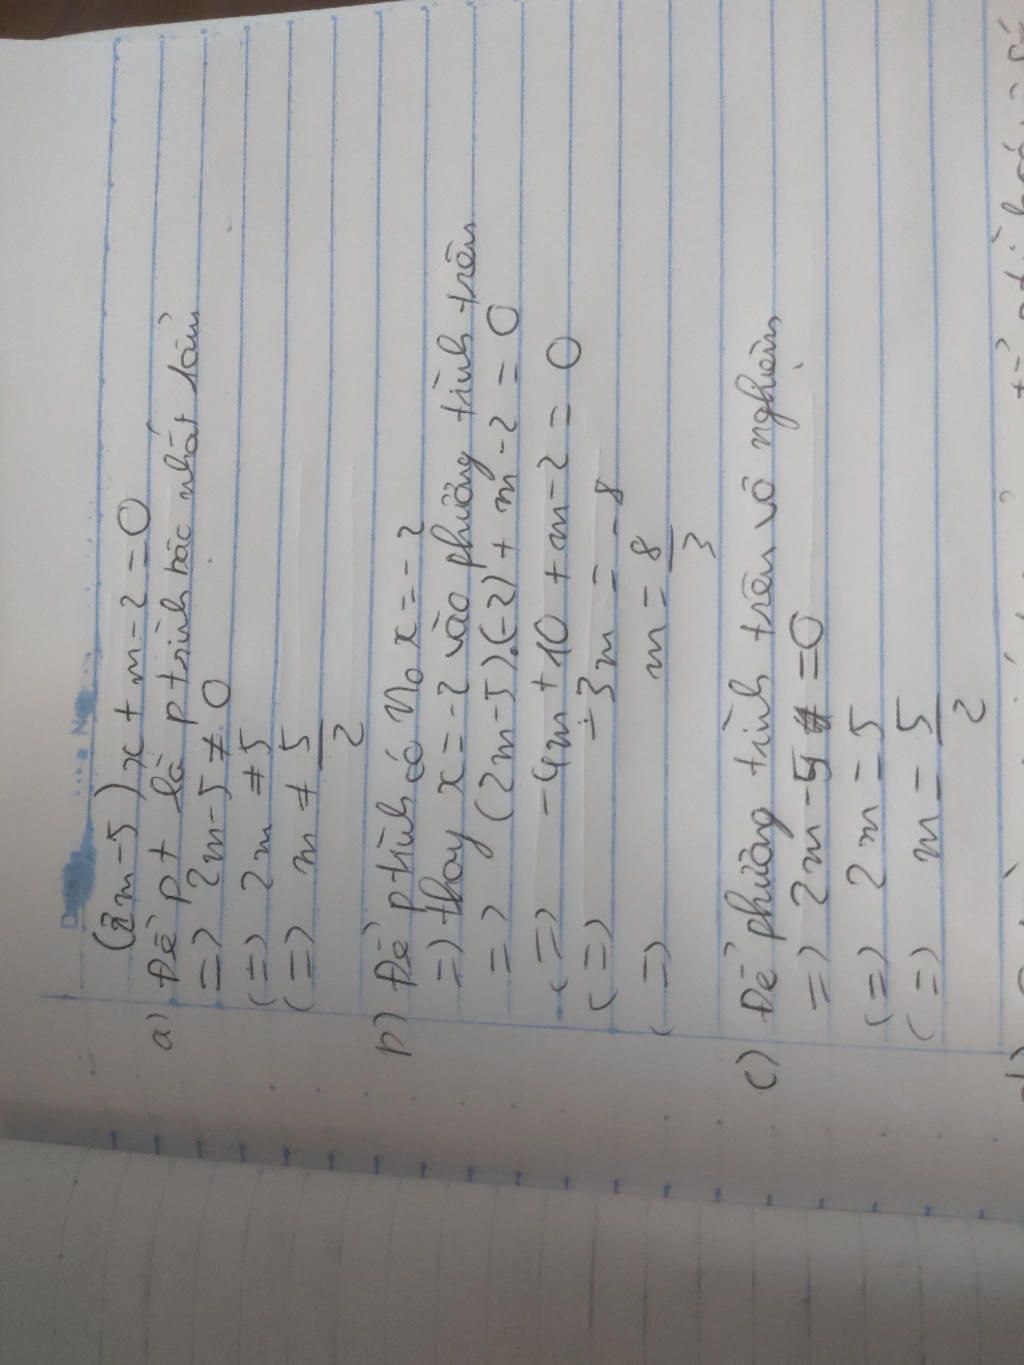 (2m-5)x + m-2 = 0
a) Để pt là ptrình bậc nhất 1 ẩn
=> 2m-5 ≠ 0
(=) 2m ≠ 5
(=) m ≠ 5/2
b) Để ptrình có no x = -2
=) thay x = -2 vào phương tình trên
=) (2m-5).(-2) + m-2 = 0
(=) -4m + 10 + m-2 = 0
(=) -3m = -8
(=) m = 8/3
c) Để phương tình trên vô nghiệm
=) 2m-5 = 0
(=) 2m = 5
(=) m = 5/2